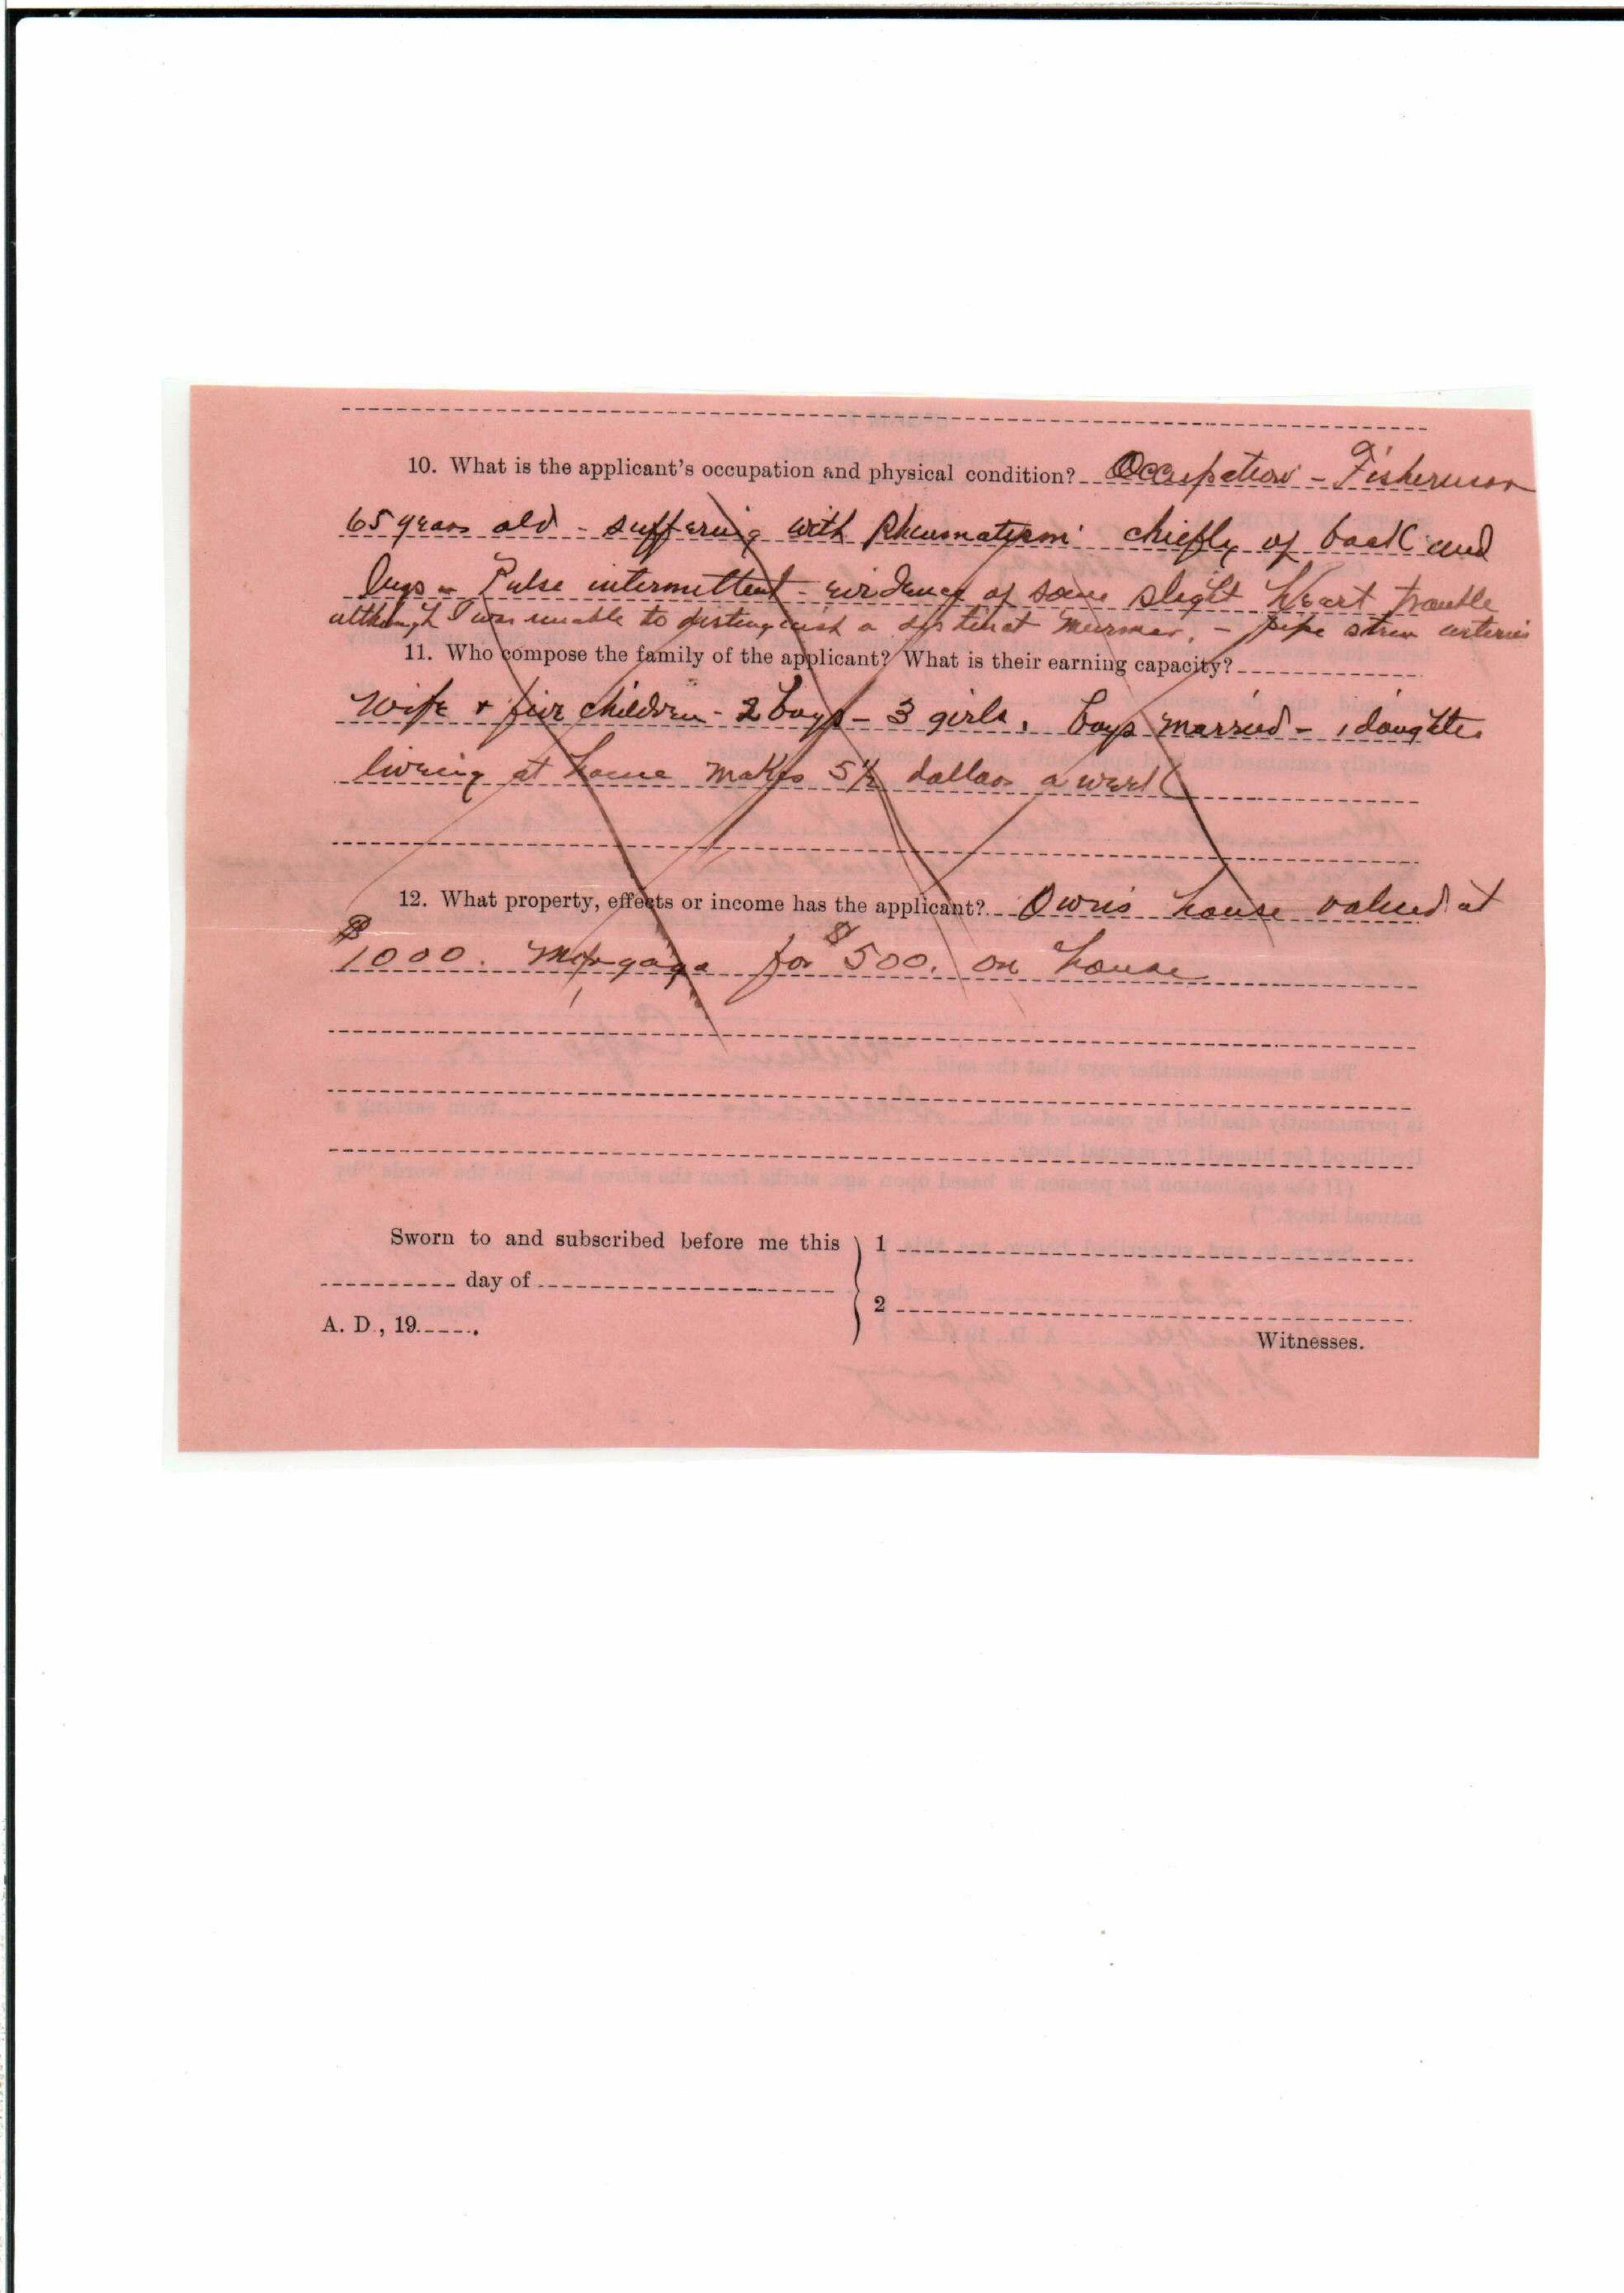 10. What is the applicant's occupation and physical condition? Occupation - Fisherman
65 years old - suffering with Rheumatism chiefly of back and
legs - Pulse intermittent - evidence of some slight Heart trouble
although I was unable to distinguish a distinct murmer. - pipe stem arteries
11. Who compose the family of the applicant? What is their earning capacity?
Wife + five children - 2 boys - 3 girls. boys married - 1 daughter
living at home makes 5½ dollars a week
12. What property, effects or income has the applicant? Owns house valued at
$1000. Morgage for $500. on house
Sworn to and subscribed before me this
day of
A. D., 19
1
2
Witnesses.